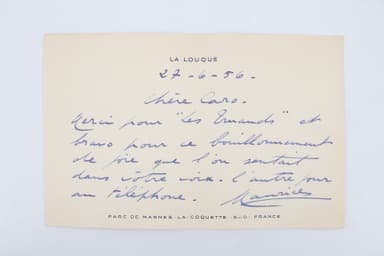 LA LOUQUE
27-6-56-
Chère Caro-
Merci pour "Les Truands" et
bravo pour ce bouillonnement
de joie que l'on sentait
dans vôtre voix. l'autre jour
au téléphone. Maurice
PARC DE MARNES-LA-COQUETTE -S./O- FRANCE